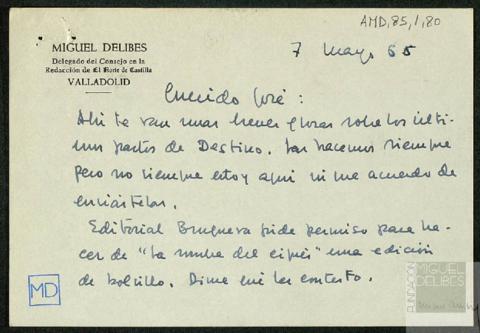 AMD,85,1,80
MIGUEL DELIBES
Delegado del Consejo en la
Redacción de El Norte de Castilla
VALLADOLID
7 Mayo 65
Querido José:
Ahí te van unas breves glosas sobre los últi-
mos partos de Destino. Las hacemos siempre
pero no siempre estoy aquí ni me acuerdo de
enviártelas.
Editorial Bruguera pide permiso para ha-
cer de "La sombra del ciprés" una edición
de bolsillo. Dime qué les contesto.
MD
FUNDACIÓN
MIGUEL
DELIBES